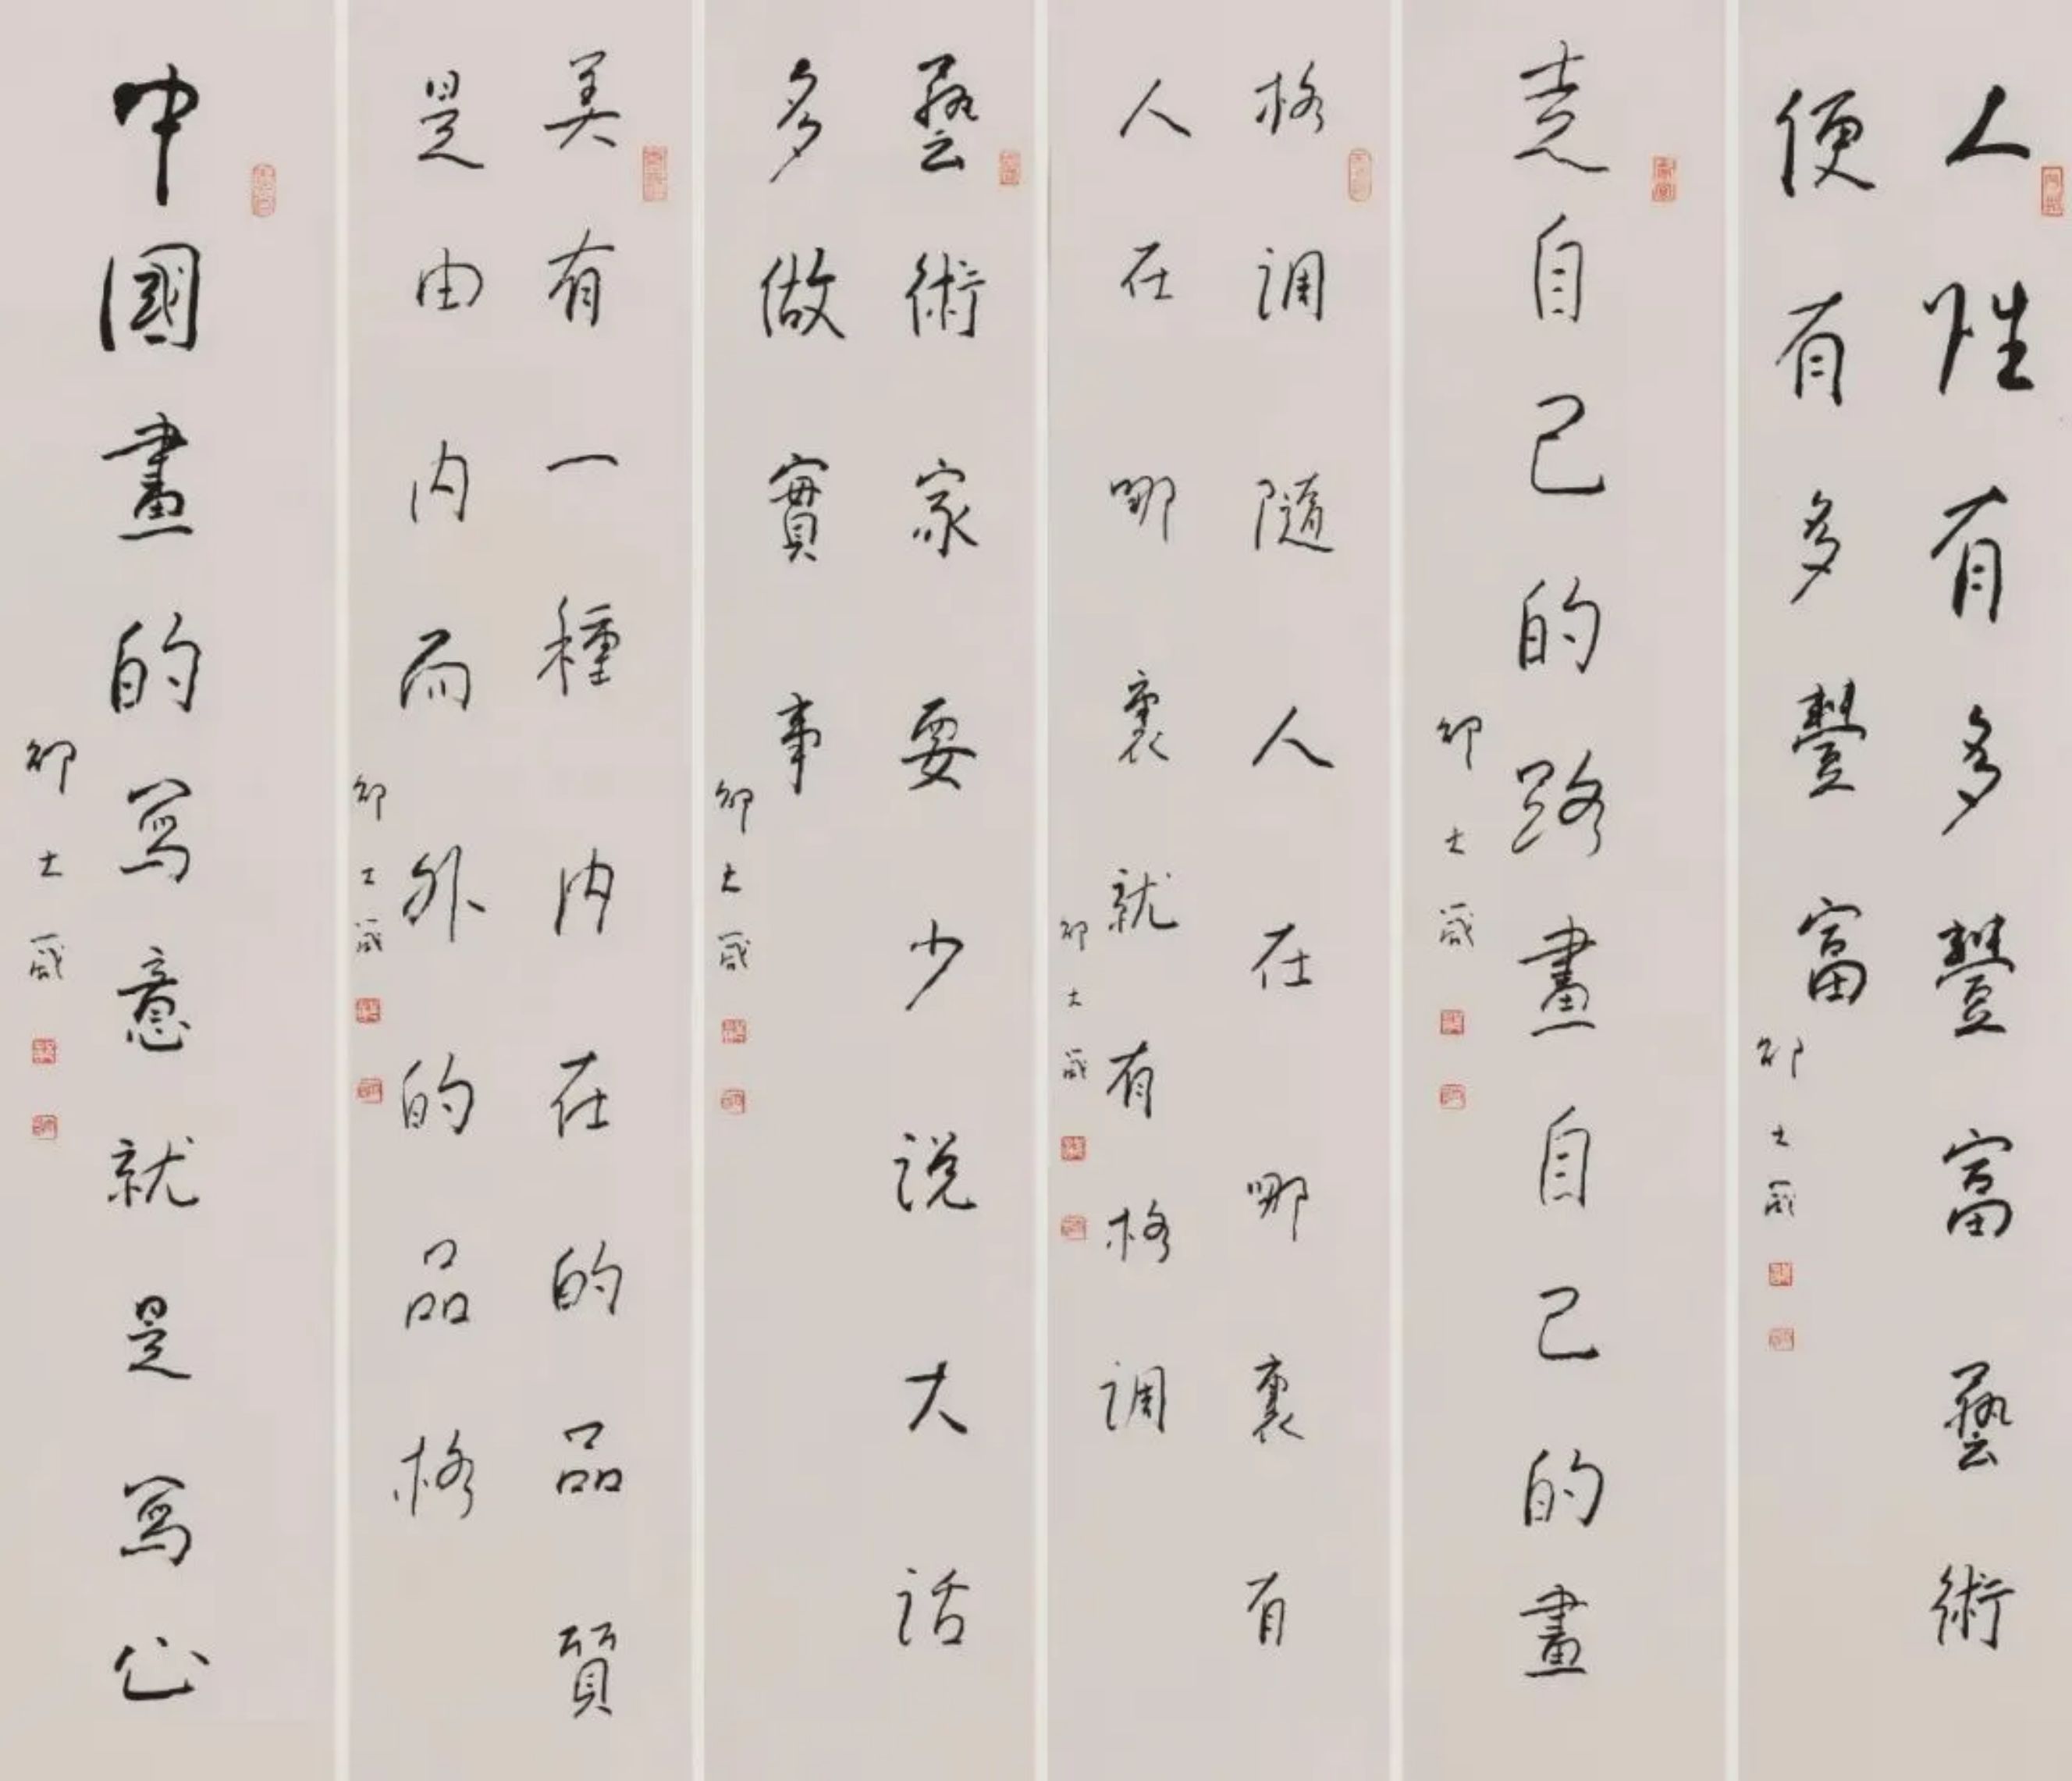 人性有多豐富藝術
便有多豐富
邵士箴
走自己的路畫自己的畫
邵士箴
格調隨人在哪裏有
人在哪裏就有格調
邵士箴
藝術家要少説大話
多做實事
邵士箴
美有一種内在的品質
是由内而外的品格
邵士箴
中國畫的寫意就是寫心
邵士箴